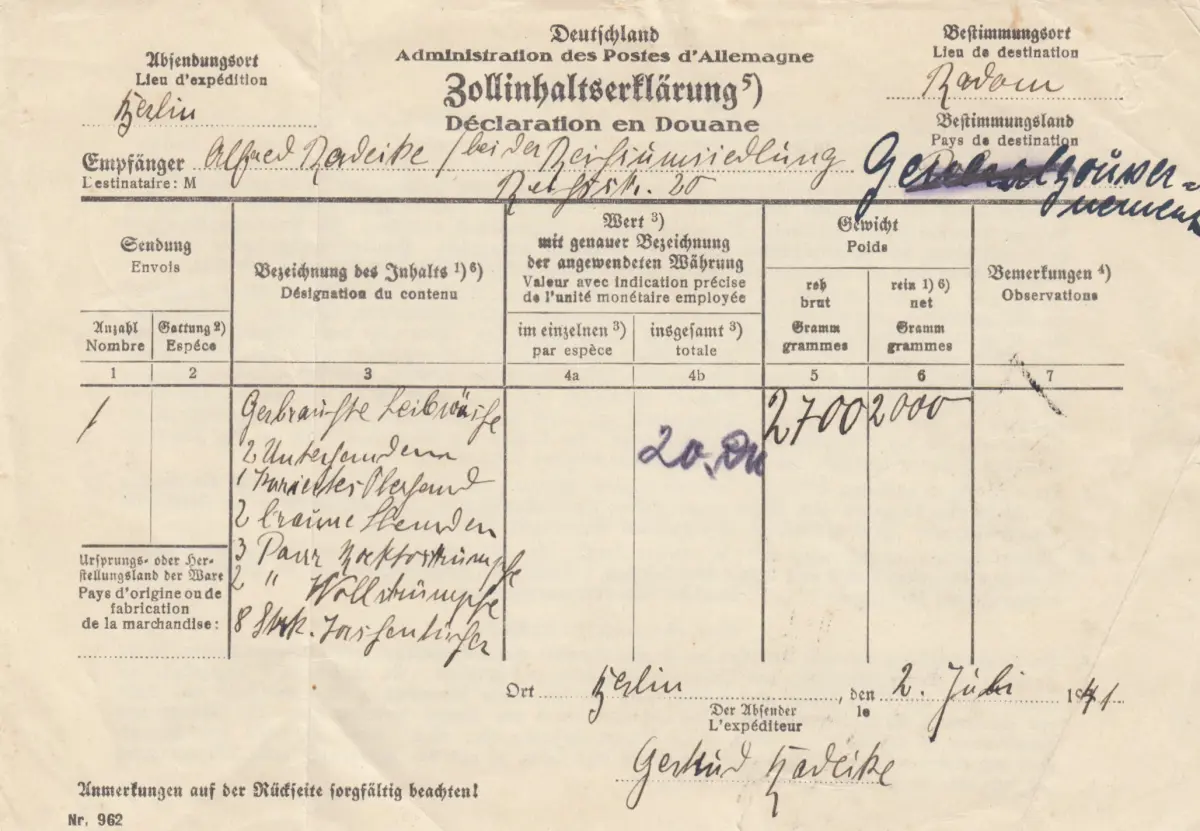 Deutschland
Administration des Postes d'Allemagne
Zollinhaltserklärung⁵)
Déclaration en Douane
Absendungsort
Lieu d'expédition
Berlin
Bestimmungsort
Lieu de destination
Radom
Bestimmungsland
Pays de destination
Generalgouver-
nement
Empfänger Alfred Radeike / bei der Reichsumsiedlung
Destinataire: M
20
Sendung
Envois
Anzahl
Nombre
Gattung 2)
Espèce
Bezeichnung des Inhalts 1) 6)
Désignation du contenu
Wert 3)
mit genauer Bezeichnung
der angewendeten Währung
Valeur avec indication précise
de l'unité monétaire employée
im einzelnen 3)
par espèce
insgesamt 3)
totale
Gewicht
Poids
roh
brut
Gramm
grammes
rein 1) 6)
net
Gramm
grammes
Bemerkungen 4)
Observations
1 2 3 4a 4b 5 6 7
1 Gebrauchte Leibwäsche 2700 2000
2 Unterhemden 20,
1 Oberhemd
2 braune Hemden
3 Paar
2 " Wollstrümpfe
8 Stck. Taschentücher
Ursprungs- oder Her-
stellungsland der Ware
Pays d'origine ou de
fabrication
de la marchandise:
Ort Berlin, den 2. Juli 1941
le
Der Absender
L'expéditeur
Gertrud Radeike
Anmerkungen auf der Rückseite sorgfältig beachten!
Nr. 962